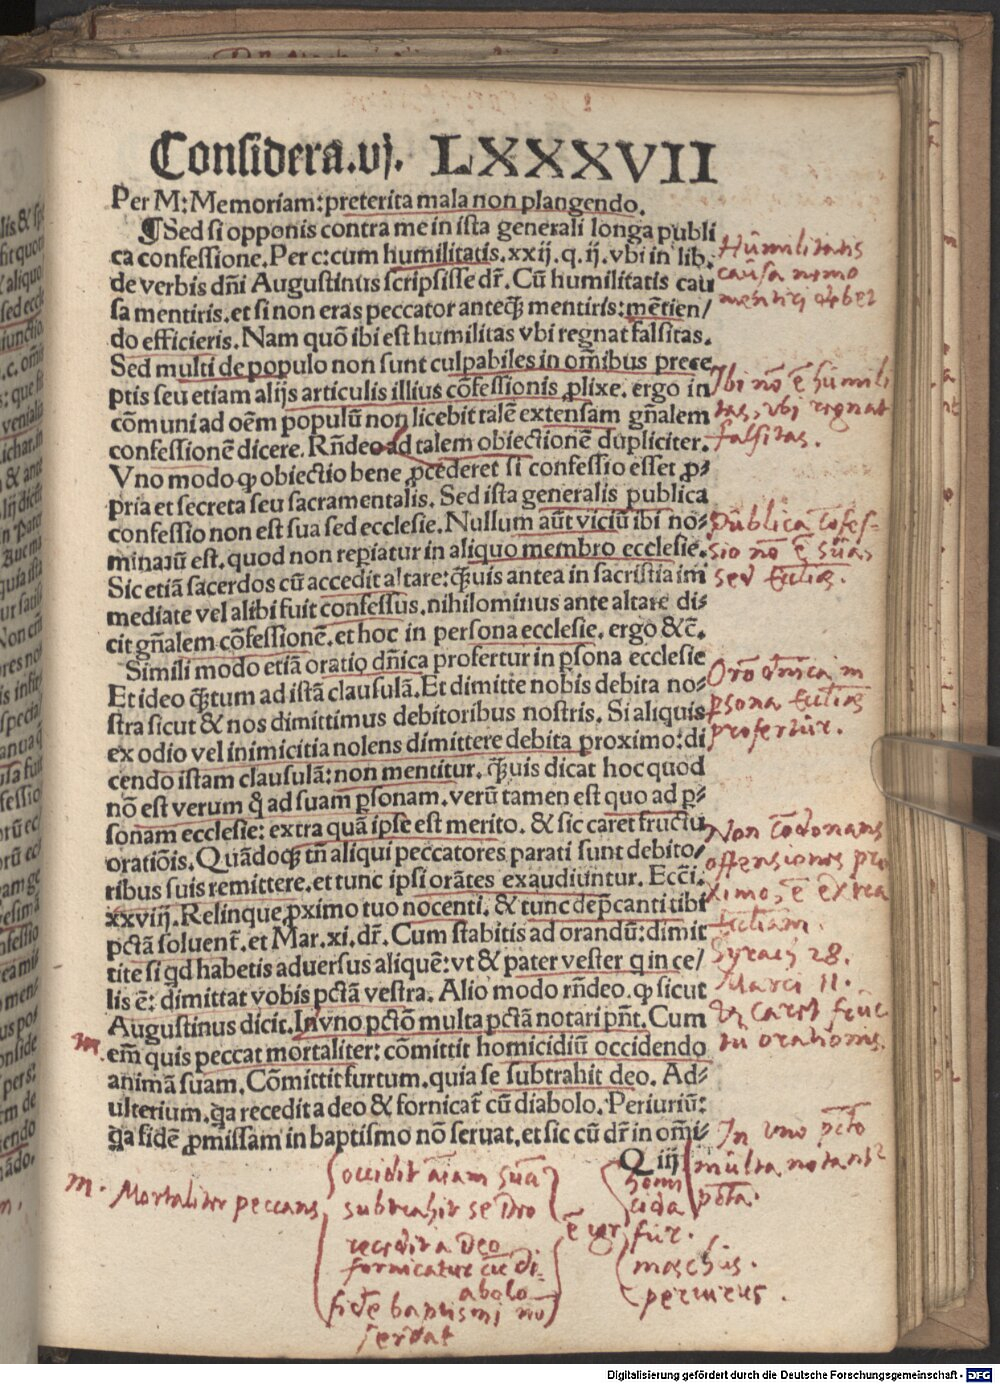 Considera.vj. LXXXVII
Per M: Memoriam: preterita mala non plangendo.
¶ Sed si opponis contra me in ista generali longa publi
ca confessione. Per c: cum humilitatis. xxij. q. ij. vbi in lib.
de verbis dñi Augustinus scripsisse dr̄. Cũ humilitatis cau
sa mentiris. et si non eras peccator anteq̃ mentiris: mētien/
do efficieris. Nam quõ ibi est humilitas vbi regnat falsitas.
Sed multi de populo non sunt culpabiles in oībus prece
ptis seu etiam alijs articulis illius cōfessionis ꝓlixe. ergo in
cōmuni ad oēm populū non licebit talē extensam gñalem
confessionē dicere. Rñdeo ad talem obiectionē dupliciter.
Vno modo ꝙ obiectio bene ꝓcederet si confessio esset ꝓ⸗
pria et secreta seu sacramentalis. Sed ista generalis publica
confessio non est sua sed ecclesie. Nullum aūt viciū ibi no⸗
minatū est. quod non repiatur in aliquo membro ecclesie.
Sic etiā sacerdos cū accedit altare: q̃uis antea in sacristia im
mediate vel alibi fuit confessus. nihilominus ante altare di⸗
cit gñalem cōfessionē. et hoc in persona ecclesie. ergo &c̄.
Simili modo etiā oratio dñica profertur in ꝑsona ecclesie
Et ideo q̃tum ad istā clausulā. Et dimitte nobis debita no⸗
stra sicut & nos dimittimus debitoribus nostris. Si aliquis
ex odio vel inimicitia nolens dimittere debita proximo: di
cendo istam clausulā: non mentitur. q̃uis dicat hoc quod
nō est verum q̃ ad suam ꝑsonam. verū tamen est quo ad ꝑ⸗
sonam ecclesie: extra quā ipse est merito. & sic caret fructu
oratiōis. Quādoq̃ tñ aliqui peccatores parati sunt debito/
ribus suis remittere. et tunc ipsi orātes exaudiuntur. Ecc̄i.
xxviij. Relinque ꝓximo tuo nocenti. & tunc dep̄canti tibi
pctā soluent̄. et Mar. xi. dr̄. Cum stabitis ad orandū: dimit
tite si qd habetis aduersus aliquē: vt & pater vester q in ce/
lis ē: dimittat vobis pctā vestra. Alio modo rñdeo. ꝙ sicut
Augustinus dicit. In vno pctō multa pctā notari pñt. Cum
em̄ quis peccat mortaliter: cōmittit homicidiū occidendo
animā suam. Cōmittit furtum. quia se subtrahit deo. Ad⸗
ulterium. q̄a recedit a deo & fornicat̄ cū diabolo. Periuriū:
q̄a fidē ꝓmissam in baptismo nō seruat. et sic cū dr̄ in om̄i⸗
Q iij
Hūmilitatis
causa nemo
mentiri debet
Ibi nō ē hūmili
tas, vbi regnat
falsitas.
Pūblica cōfes⸗
sio nō ē sūa,
sed Ecclīae.
Orō dnīca in
ꝑsona Ecclīae
profertūr.
Non cōdonans
offensiones pro
ximo, ē extra
Ecclīam.
Syrach 28.
Marci 11.
et caret frūc
tu orationis.
In vno pctō
mūlta notant⸗
pctā.
m.
m. Mortaliter peccans
occidit aīam sūā
subtrahit se Deo
recedit a Deo
fornicatur cū di⸗
abolo
fidē baptismi nō
seruat
ē igr
homi
cida
fūr.
moechus.
periurus.
Digitalisierung gefördert durch die Deutsche Forschungsgemeinschaft - DFG